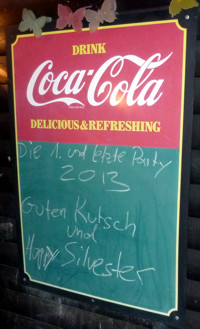 DRINK
Coca-Cola
DELICIOUS&REFRESHING
Die 1. und letzte Party
2013
Guten Rutsch
und
Happy Silvester